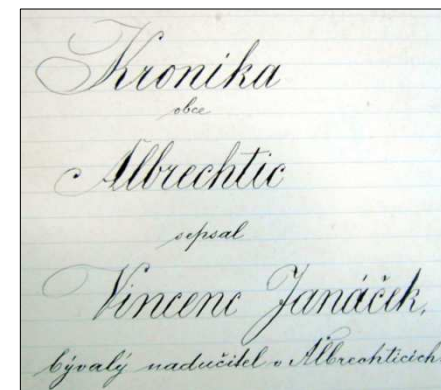 Kronika
obce
Albrechtic
sepsal
Vincenc Janáček,
bývalý nadučitel v Albrechticích.